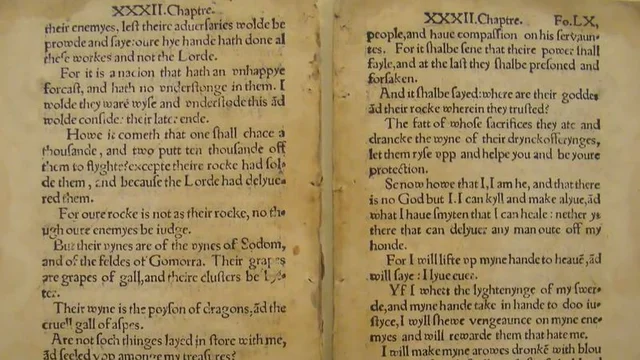 XXXII.Chaptre.
their enemyes, lest theire adversaries wolde be
prowde and saye: oure hye hande hath done al
these workes and not the Lorde.
For it is a nacion that hath an vnhappye
forcast, and hath no vnderstonge in them. I
wolde they ware wyse and vnderstode this ād
wolde consider their later ende.
Howe it cometh that one shall chace a
thousande, and two putt ten thousande off
them to flyghte? excepte theire rocke had sol-
de them, and because the Lorde had delyue-
red them.
For oure rocke is not as their rocke, no tho-
ugh oure enemyes be iudge.
But their vynes are of the vynes of Sodom,
and of the feldes of Gomorra. Their grapes
are grapes of gall, and theire clusters be byt-
ter.
Their wyne is the poyson of dragons, ād the
cruell gall of aspes.
Are not soch thinges layed in store with me,
ād seeled vpp amonge my treasures?
XXXII.Chaptre. Fo.LX,
people, and haue compassion on his servaun-
tes. For it shalbe sene that theire power shall
fayle, and at the last they shalbe presoned and
forsaken.
And it shalbe sayed: where are their goddes
ād their rocke wherein they trusted?
The fatt of whose sacrifices they ate and
drancke the wyne of their drynckofferynges,
let them ryse vpp and helpe you and be youre
protection.
Se now howe that I, I am he, and that there
is no God but I. I can kyll and make alyue, ād
what I haue smyten that I can heale: nether ys
there that can delyuer any man oute off my
honde.
For I will lifte vp myne hande to heauē, ād
will saye: I lyue euer.
Yf I whett the lyghtenynge of my swer-
de, and myne hande take in hande to doo iu-
styce, I wyll shewe vengeaunce on myne ene-
myes and will rewarde them that hate me.
I will make myne arowes dronkē with blou